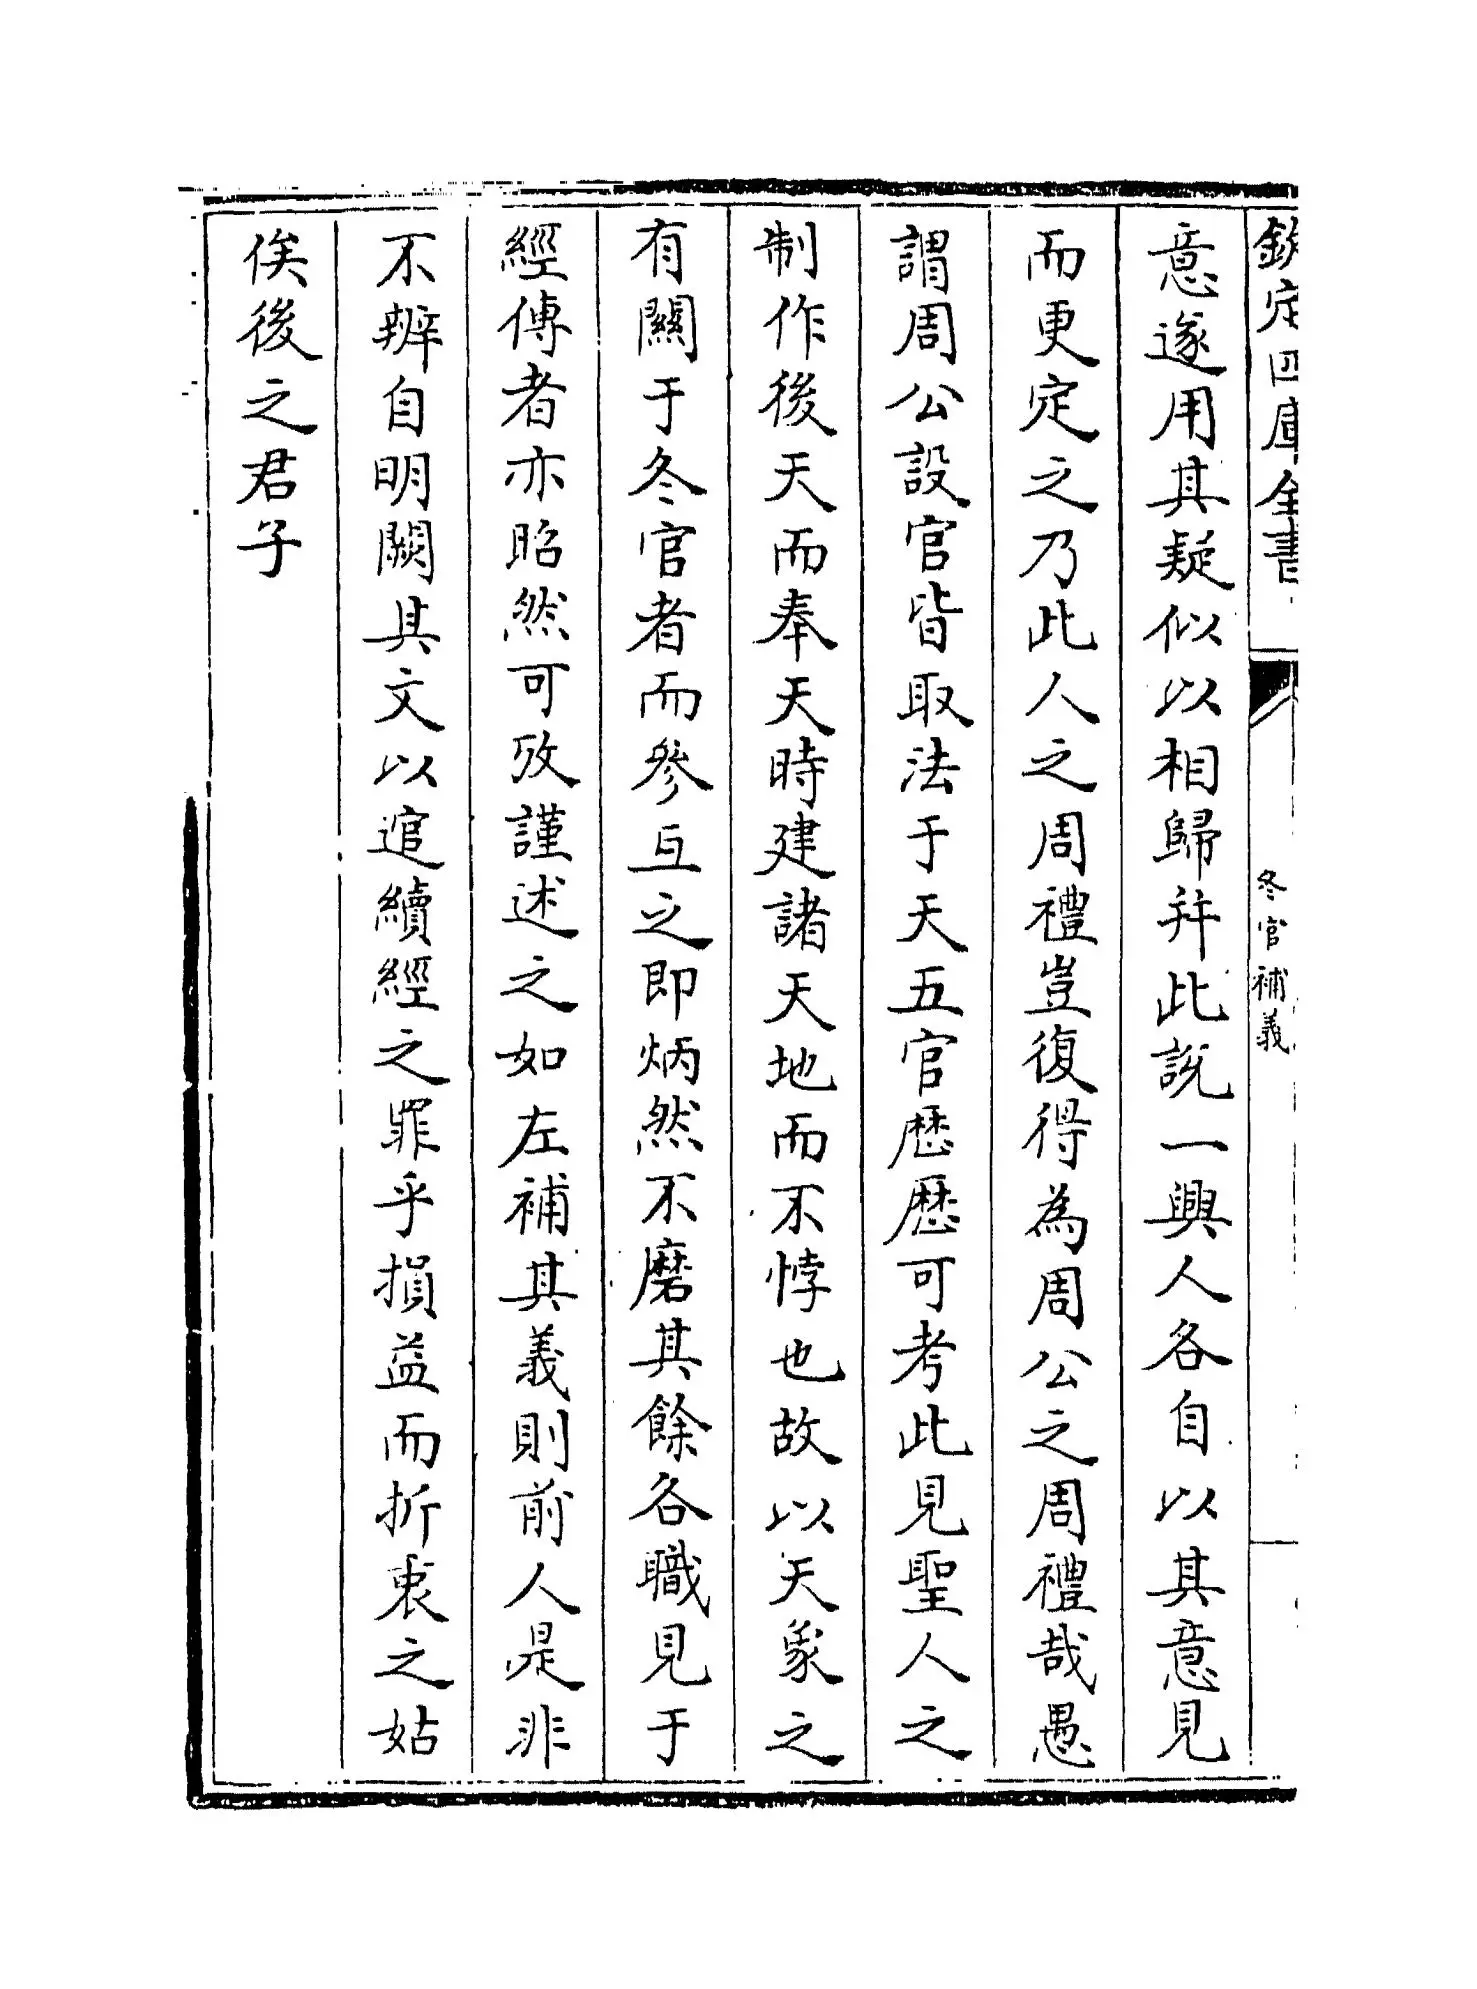 欽定四庫全書
冬官補義
意遂用其疑似以相歸并此說一興人各自以其意見
而更定之乃此人之周禮豈復得為周公之周禮哉愚
謂周公設官皆取法于天五官歴歴可考此見聖人之
制作後天而奉天時建諸天地而不悖也故以天象之
有關于冬官者而參互之即炳然不磨其餘各職見于
經傳者亦昭然可攷謹述之如左補其義則前人是非
不辨自明闕其文以逭續經之罪乎損益而折衷之姑
俟後之君子